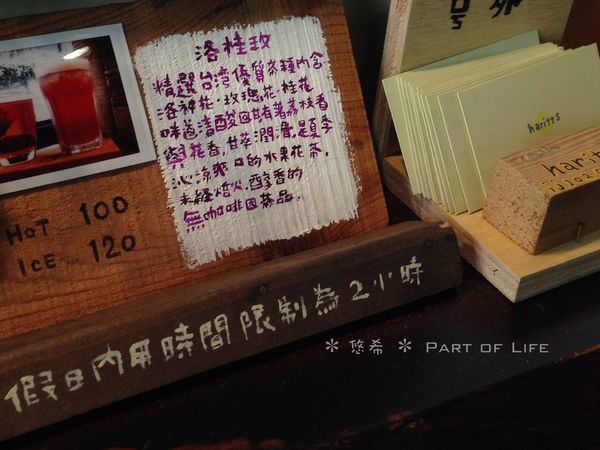 洛桂玫
精選台湾優質茶種內含
洛神花、玫瑰花、桂花
味道清酸回甘有著荔枝香
與花香，甘萃潤滑，是夏季
沁涼爽口的水果花茶，
未經焙火，醇香的
無咖啡因茶品.
HOT 100
ICE 120
假日內用時間限制為2小時
號外
haritts
haritts
＊ 悠希 ＊ PART OF LIFE